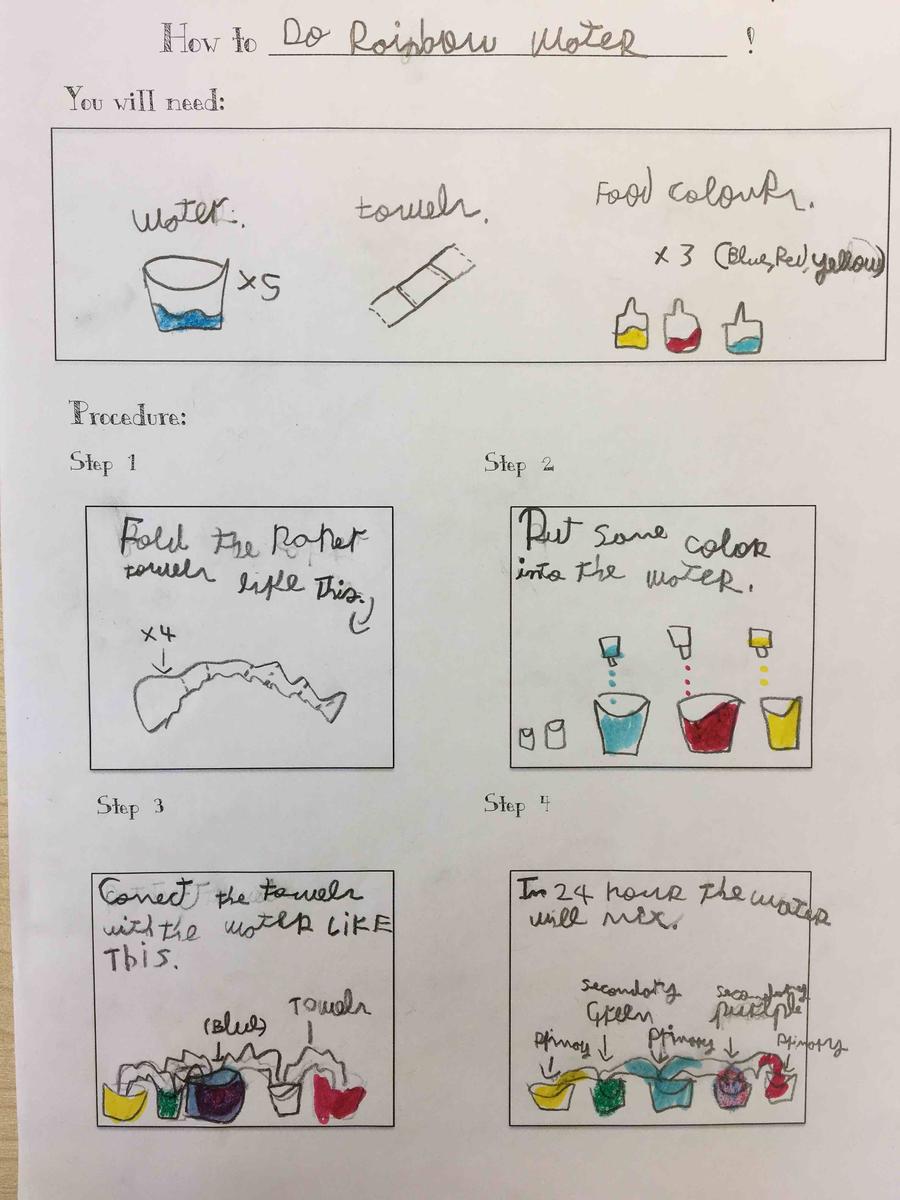 How to Do Rainbow Water !
You will need:
Water.
towels.
Food colours.
x5
x 3 (Blue, Red, yellow)
Procedure:
Step 1
Fold the Paper
towels like This.
x4
Step 2
Put some color
into the water.
Step 3
Conect the towels
with the water LIKE
This.
(Blue)
Towels
Step 4
In 24 hour the water
will mix.
secondary
Green
secondary
purple
Primary
Primary
Primary